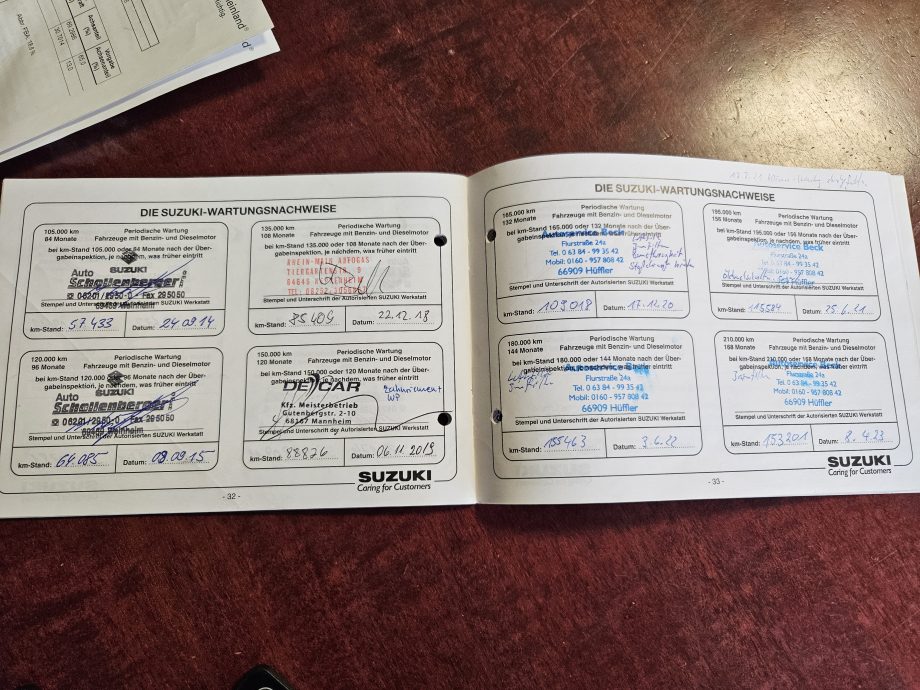 einland®
d®
Abbr. FBA: 18,6 %
DIE SUZUKI-WARTUNGSNACHWEISE
105.000 km
84 Monate
Periodische Wartung
Fahrzeuge mit Benzin- und Dieselmotor
bei km-Stand 105.000 oder 84 Monate nach der Über-
gabeinspektion, je nachdem, was früher eintritt
SUZUKI
Auto
Schollenberger
06201/2950-0 Fax 295050
69469 Weinheim
Stempel und Unterschrift der Autorisierten SUZUKI Werkstatt
km-Stand: 57.433 Datum: 24.09.14
120.000 km
96 Monate
Periodische Wartung
Fahrzeuge mit Benzin- und Dieselmotor
bei km-Stand 120.000 oder 96 Monate nach der Über-
gabeinspektion, je nachdem, was früher eintritt
SUZUKI
Auto
Schollenberger
06201/2950-0 Fax 295050
69469 Weinheim
Stempel und Unterschrift der Autorisierten SUZUKI Werkstatt
km-Stand: 64.085 Datum: 09.09.15
135.000 km
108 Monate
Periodische Wartung
Fahrzeuge mit Benzin- und Dieselmotor
bei km-Stand 135.000 oder 108 Monate nach der Über-
gabeinspektion, je nachdem, was früher eintritt
RHEIN-MAIN AUTOGAS
TIERGARTENSTR. 9
Stempel und Unterschrift der Autorisierten SUZUKI Werkstatt
km-Stand: 85409 Datum: 22.12.18
150.000 km
120 Monate
Periodische Wartung
Fahrzeuge mit Benzin- und Dieselmotor
bei km-Stand 150.000 oder 120 Monate nach der Über-
gabeinspektion, je nachdem, was früher eintritt
Zahnriemen+
WP
Kfz. Meisterbetrieb
Gutenbergstr. 2-10
68167 Mannheim
Stempel und Unterschrift der Autorisierten SUZUKI Werkstatt
km-Stand: 88826 Datum: 06.11.2019
SUZUKI
Caring for Customers
- 32 -
DIE SUZUKI-WARTUNGSNACHWEISE
165.000 km
132 Monate
Periodische Wartung
Fahrzeuge mit Benzin- und Dieselmotor
bei km-Stand 165.000 oder 132 Monate nach der Über-
gabeinspektion, je nachdem, was früher eintritt
Autoservice Beck
Flurstraße 24a
Tel. 0 63 84 - 99 35 42
Mobil: 0160 - 957 808 42
66909 Hüffler
Stempel und Unterschrift der Autorisierten SUZUKI Werkstatt
km-Stand: 109018 Datum: 17.12.20
180.000 km
144 Monate
Periodische Wartung
Fahrzeuge mit Benzin- und Dieselmotor
bei km-Stand 180.000 oder 144 Monate nach der Über-
gabeinspektion, je nachdem, was früher eintritt
Autoservice
Flurstraße 24a
Tel. 0 63 84 - 99 35 42
Mobil: 0160 - 957 808 42
66909 Hüffler
Stempel und Unterschrift der Autorisierten SUZUKI Werkstatt
km-Stand: Datum: 3.6.22
195.000 km
156 Monate
Periodische Wartung
Fahrzeuge mit Benzin- und Dieselmotor
bei km-Stand 195.000 oder 156 Monate nach der Über-
gabeinspektion, je nachdem, was früher eintritt
Autoservice Beck
Flurstraße 24a
Tel. 0 63 84 - 99 35 42
Mobil: 0160 - 957 808 42
Stempel und Unterschrift der Autorisierten SUZUKI Werkstatt
km-Stand: Datum: 25.6.21
210.000 km
168 Monate
Periodische Wartung
Fahrzeuge mit Benzin- und Dieselmotor
bei km-Stand 210.000 oder 168 Monate nach der Über-
gabeinspektion, je nachdem, was früher eintritt
Autoservice Beck
Flurstraße 24a
Tel. 0 63 84 - 99 35 42
Mobil: 0160 - 957 808 42
66909 Hüffler
Stempel und Unterschrift der Autorisierten SUZUKI Werkstatt
km-Stand: 153201 Datum: 8.4.23
SUZUKI
Caring for Customers
- 33 -